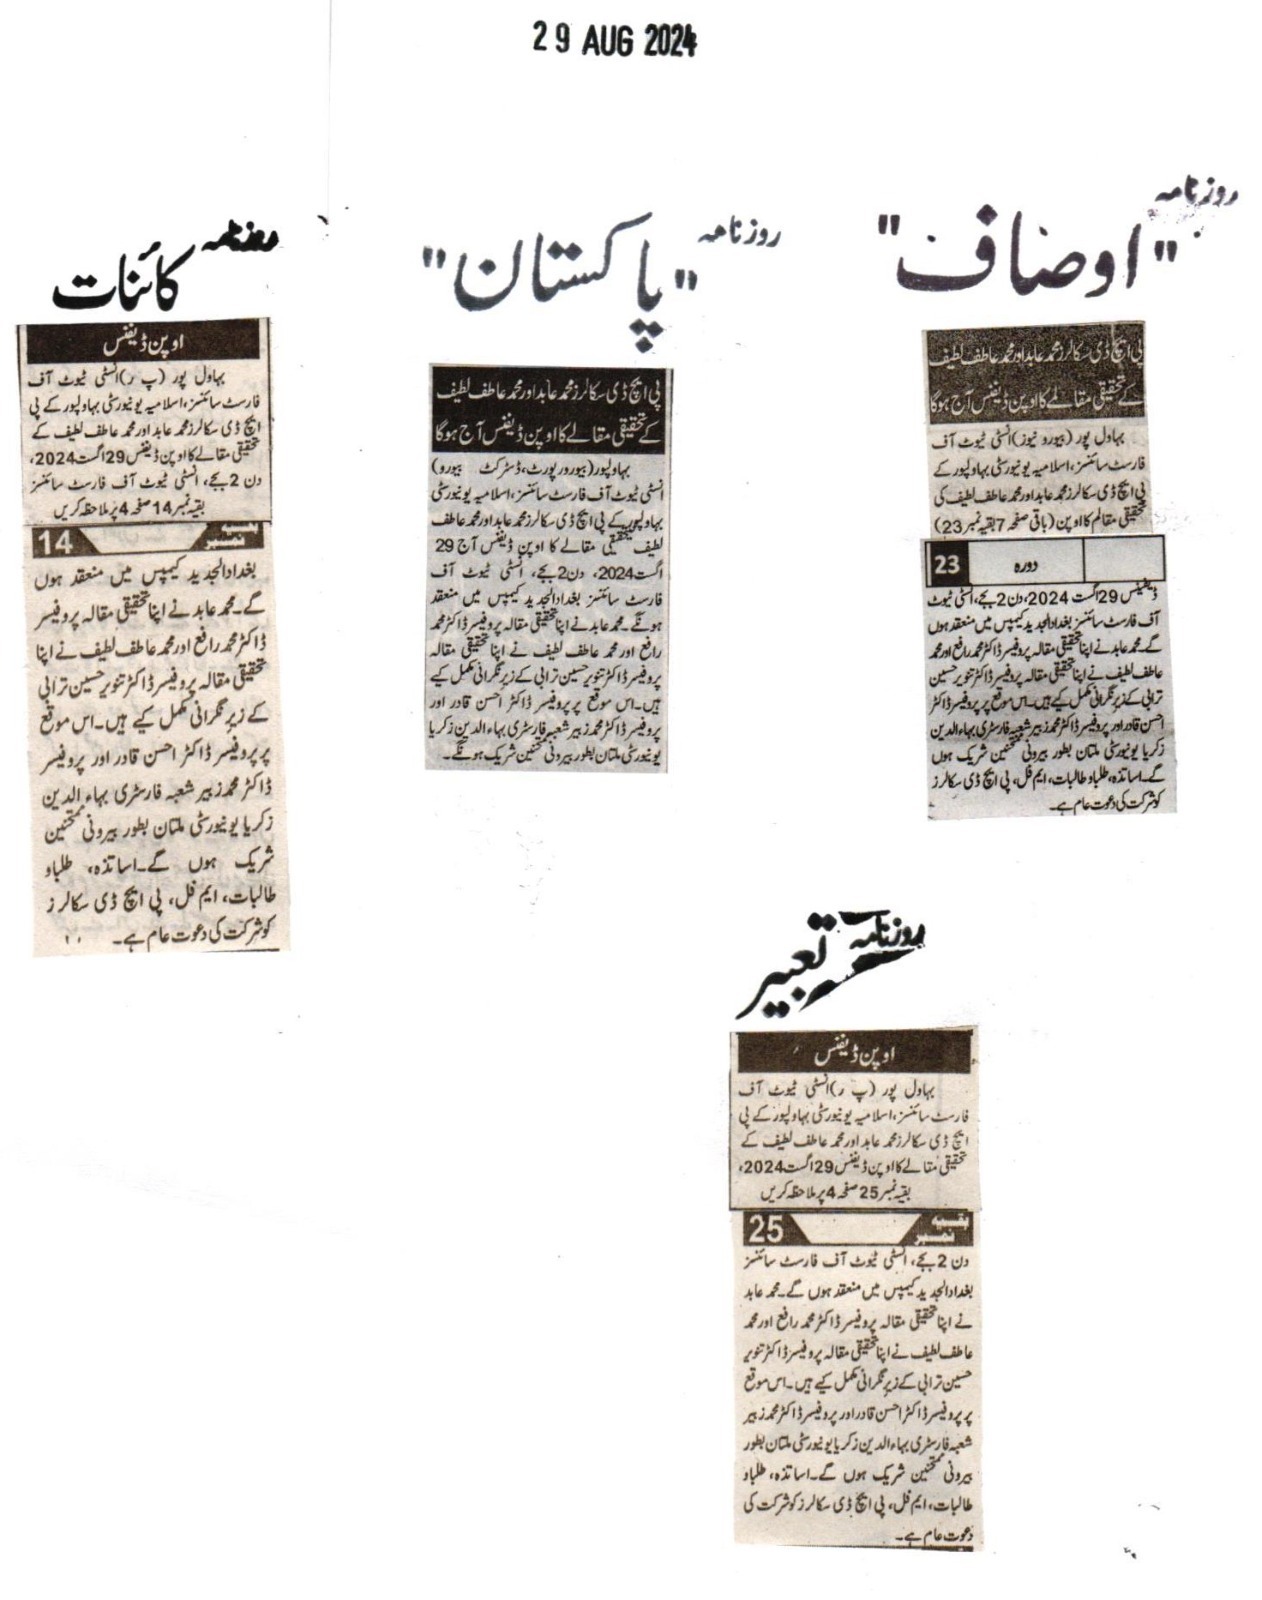 29 AUG 2024
روزنامہ
"اوصاف"
پی ایچ ڈی سکالرز محمد عابد اور محمد عاطف لطیف
کے تحقیقی مقالے کا اوپن ڈیفنس آج ہوگا
بہاول پور (بیورو نیوز) انسٹی ٹیوٹ آف
فارسٹ سائنسز، اسلامیہ یونیورسٹی بہاولپور کے
پی ایچ ڈی سکالرز محمد عابد اور محمد عاطف لطیف کی
تحقیقی مقالم کا اوپن (باقی صفحہ 7 بقیہ نمبر 23)
23 دورہ
ڈیفینس 29 اگست 2024، دن 2 بجے، انسٹی ٹیوٹ
آف فارسٹ سائنسز بغداد الجدید کیمپس میں منعقد ہوں
گے۔ محمد عابد نے اپنا تحقیقی مقالہ پروفیسر ڈاکٹر محمد رافع اور محمد
عاطف لطیف نے اپنا تحقیقی مقالہ پروفیسر ڈاکٹر تنویر حسین
ترابی کے زیر نگرانی مکمل کیے ہیں۔ اس موقع پر پروفیسر ڈاکٹر
احسن قادر اور پروفیسر ڈاکٹر محمد زبیر شعبہ فارسٹری بہاء الدین
زکریا یونیورسٹی ملتان بطور بیرونی ممتحنین شریک ہوں
گے۔ اساتذہ، طلبا و طالبات، ایم فل، پی ایچ ڈی سکالرز
کو شرکت کی دعوت عام ہے۔
روزنامہ
"پاکستان"
پی ایچ ڈی سکالرز محمد عابد اور محمد عاطف لطیف
کے تحقیقی مقالے کا اوپن ڈیفنس آج ہوگا
بہاولپور (بیورورپورٹ، ڈسٹرکٹ بیورو)
انسٹی ٹیوٹ آف فارسٹ سائنسز، اسلامیہ یونیورسٹی
بہاولپور کے پی ایچ ڈی سکالرز محمد عابد اور محمد عاطف
لطیف تحقیقی مقالے کا اوپن ڈیفنس آج 29
اگست 2024، دن 2 بجے، انسٹی ٹیوٹ آف
فارسٹ سائنسز بغداد الجدید کیمپس میں منعقد
ہونگے۔ محمد عابد نے اپنا تحقیقی مقالہ پروفیسر ڈاکٹر محمد
رافع اور محمد عاطف لطیف نے اپنا تحقیقی مقالہ
پروفیسر ڈاکٹر تنویر حسین ترابی کے زیر نگرانی مکمل کیے
ہیں۔ اس موقع پر پروفیسر ڈاکٹر احسن قادر اور
پروفیسر ڈاکٹر محمد زبیر شعبہ فارسٹری بہاء الدین زکریا
یونیورسٹی ملتان بطور بیرونی ممتحنین شریک ہونگے۔
روزنامہ
کائنات
اوپن ڈیفنس
بہاول پور (پ ر) انسٹی ٹیوٹ آف
فارسٹ سائنسز، اسلامیہ یونیورسٹی بہاولپور کے پی
ایچ ڈی سکالرز محمد عابد اور محمد عاطف لطیف کے
تحقیقی مقالے کا اوپن ڈیفنس 29 اگست 2024،
دن 2 بجے، انسٹی ٹیوٹ آف فارسٹ سائنسز
بقیہ نمبر 14 صفحہ 4 پر ملاحظہ کریں
بقیہ نمبر 14
بغداد الجدید کیمپس میں منعقد ہوں
گے۔ محمد عابد نے اپنا تحقیقی مقالہ پروفیسر
ڈاکٹر محمد رافع اور محمد عاطف لطیف نے اپنا
تحقیقی مقالہ پروفیسر ڈاکٹر تنویر حسین ترابی
کے زیر نگرانی مکمل کیے ہیں۔ اس موقع
پر پروفیسر ڈاکٹر احسن قادر اور پروفیسر
ڈاکٹر محمد زبیر شعبہ فارسٹری بہاء الدین
زکریا یونیورسٹی ملتان بطور بیرونی ممتحنین
شریک ہوں گے۔ اساتذہ، طلبا و
طالبات، ایم فل، پی ایچ ڈی سکالرز
کو شرکت کی دعوت عام ہے۔
روزنامہ
تعبیر
اوپن ڈیفنس
بہاول پور (پ ر) انسٹی ٹیوٹ آف
فارسٹ سائنسز، اسلامیہ یونیورسٹی بہاولپور کے پی
ایچ ڈی سکالرز محمد عابد اور محمد عاطف لطیف کے
تحقیقی مقالے کا اوپن ڈیفنس 29 اگست 2024،
بقیہ نمبر 25 صفحہ 4 پر ملاحظہ کریں
بقیہ نمبر 25
دن 2 بجے، انسٹی ٹیوٹ آف فارسٹ سائنسز
بغداد الجدید کیمپس میں منعقد ہوں گے۔ محمد عابد
نے اپنا تحقیقی مقالہ پروفیسر ڈاکٹر محمد رافع اور محمد
عاطف لطیف نے اپنا تحقیقی مقالہ پروفیسر ڈاکٹر تنویر
حسین ترابی کے زیر نگرانی مکمل کیے ہیں۔ اس موقع
پر پروفیسر ڈاکٹر احسن قادر اور پروفیسر ڈاکٹر محمد زبیر
شعبہ فارسٹری بہاء الدین زکریا یونیورسٹی ملتان بطور
بیرونی ممتحنین شریک ہوں گے۔ اساتذہ، طلبا و
طالبات، ایم فل، پی ایچ ڈی سکالرز کو شرکت کی
دعوت عام ہے۔